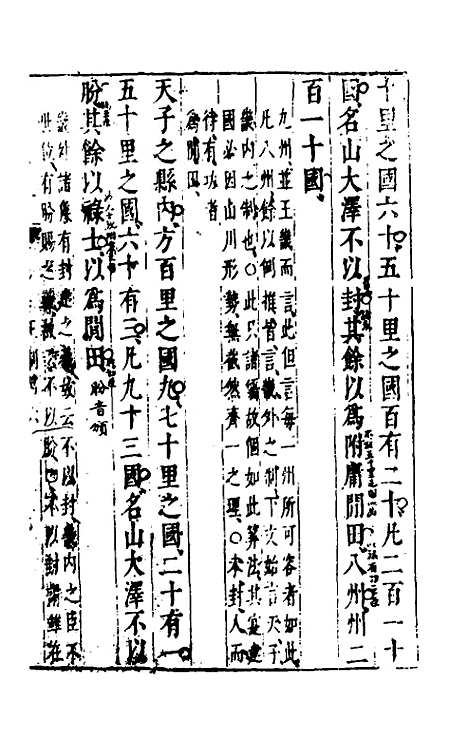 十里之國六十五十里之國百有二十凡二百一十
國名山大澤不以封其餘以爲附庸閒田八州州二
百一十國
九州並王畿而言此但言每一州所可容者如此
凡八州餘以例推皆言畿外之制下文始言天子
畿内之制也〇此只諸儒故個如此算法其實建
國必因山川形勢無截然齊一之理〇未封人而
律有功者
爲閒田
天子之縣内方百里之國九七十里之國二十有一
五十里之國六十有三凡九十三國名山大澤不以
朌其餘以祿士以爲閒田朌音頒
畿外諸侯有封建之義故云不以封畿内之臣不
世位有朌賜之義故云不以朌